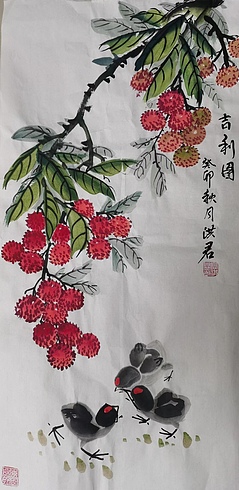 吉利图
癸卯秋月洪君